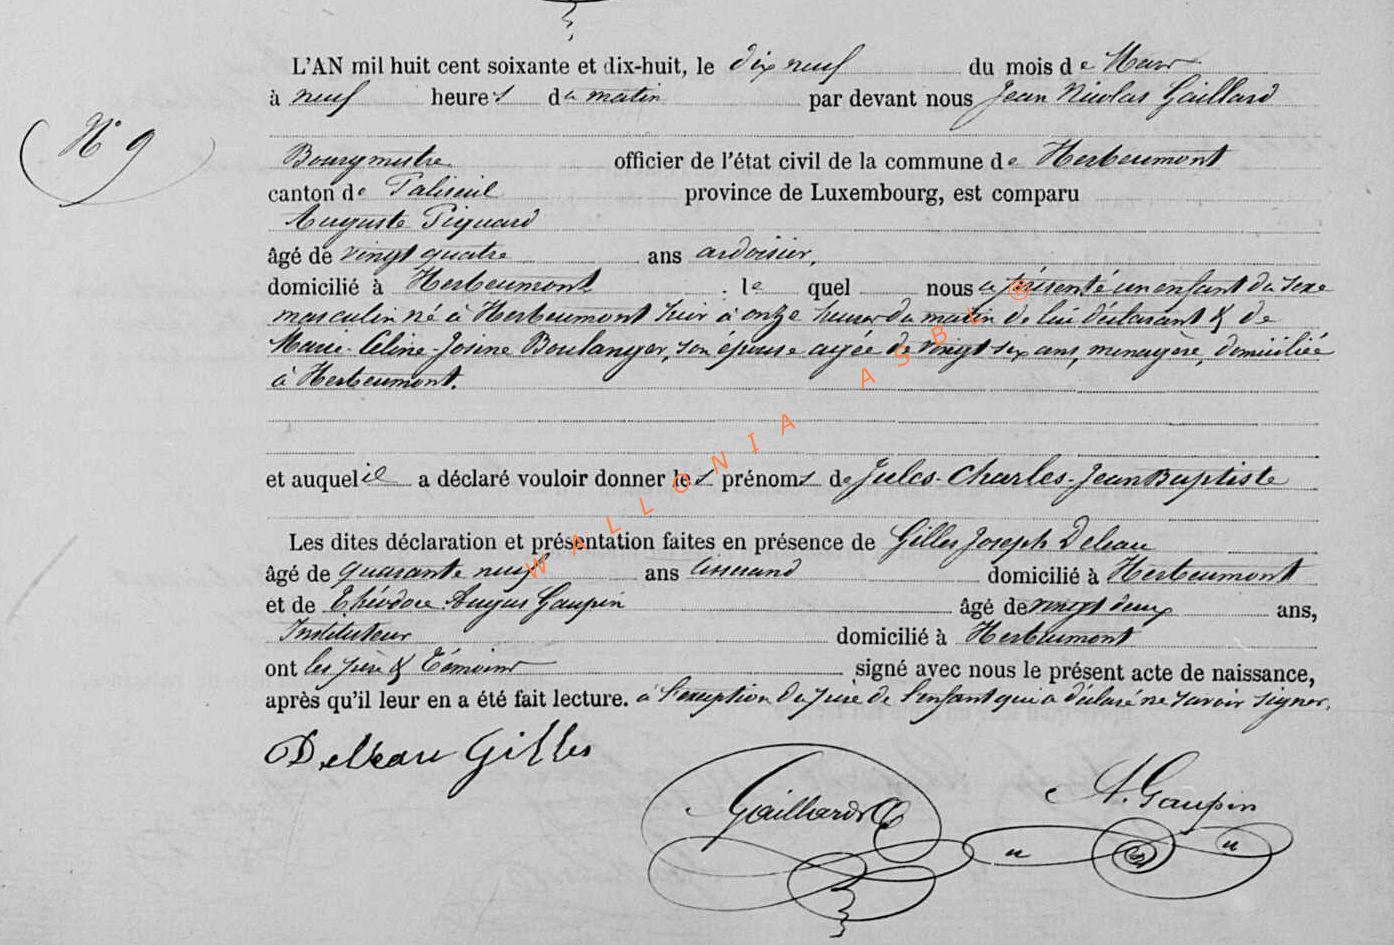 L'AN mil huit cent soixante et dix-huit, le dix neuf du mois de Mars
à neuf heures du matin par devant nous Jean Nicolas Gaillard
N° 9
Bourgmestre officier de l'état civil de la commune de Herbeumont
canton de Paliseul province de Luxembourg, est comparu
Auguste Piquard
âgé de vingt quatre ans ardoisier,
domicilié à Herbeumont : lequel nous a présenté un enfant du sexe
masculin né à Herbeumont hier à onze heures du matin de lui déclarant & de
Marie Céline Josine Boulanger, son épouse agée de vingt six ans, menagère, domiciliée
à Herbeumont.
et auquel il a déclaré vouloir donner les prénoms de Jules-Charles-Jean Baptiste
Les dites déclaration et présentation faites en présence de Gilles Joseph Deleau
âgé de quarante neuf ans tisserand domicilié à Herbeumont
et de Théodore Gaupin âgé de vingt deux ans,
Instituteur domicilié à Herbeumont
ont les père & témoins signé avec nous le présent acte de naissance,
après qu'il leur en a été fait lecture. à l'exception du père de l'enfant qui a déclaré ne savoir signer.
Deleau Gilles
Gaillard A. Gaupin
WALLONIA ASBL ©